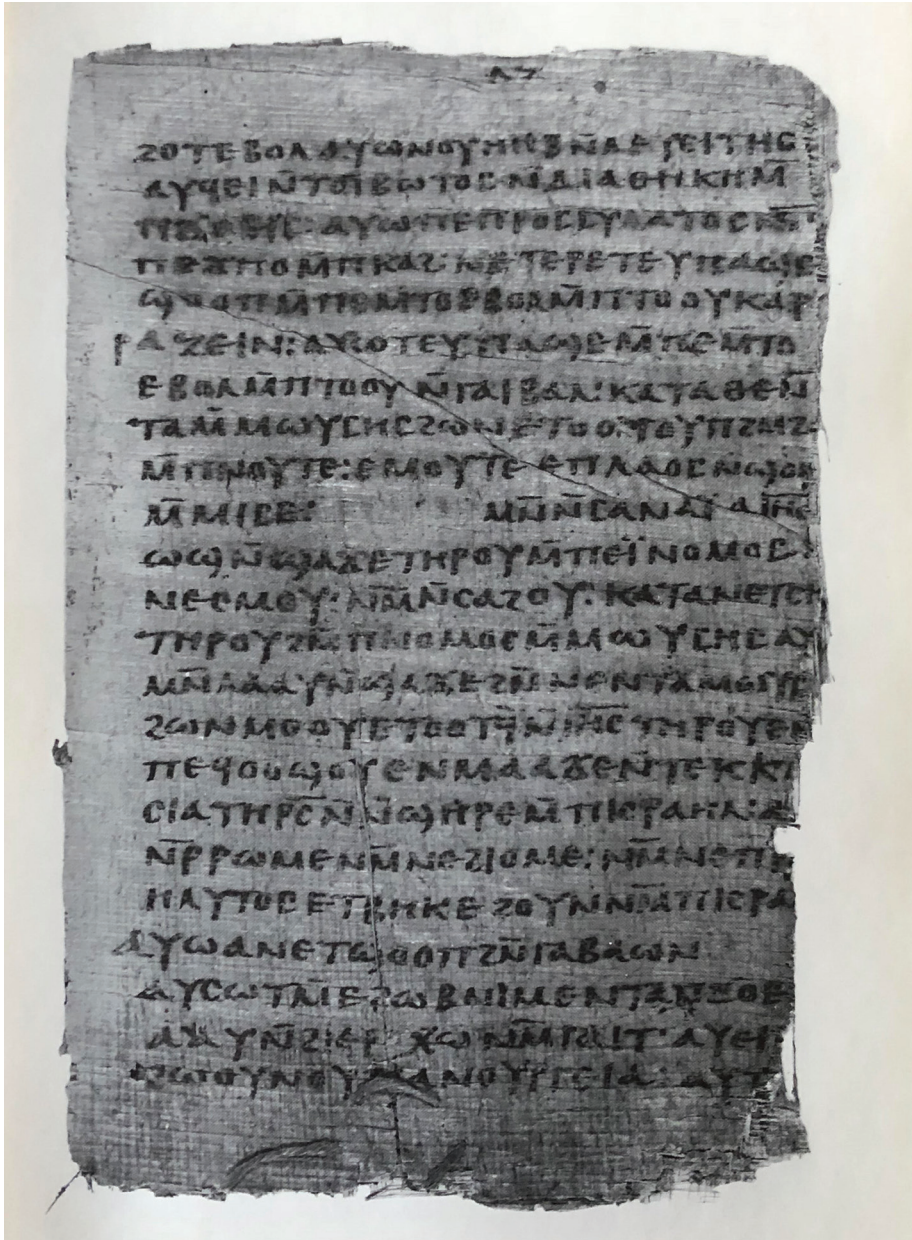 ⲗⲍ
ϩⲟⲧⲉⲃⲟⲗ ⲁⲩⲱⲛⲟⲩⲏⲏⲃⲛ̄ⲗⲉⲩⲉⲓⲧⲏⲥ
ⲁⲩϥⲉⲓⲛ̄ⲧϭⲓⲃⲱⲧⲟⲥⲛ̄ⲇⲓⲁⲑⲏⲕⲏⲙ̄
ⲡϫⲟⲉⲓⲥ· ⲁⲩⲱⲡⲉⲡⲣⲟⲥⲏⲩⲗⲁⲧⲟⲥⲙⲛ̄
ⲡⲉϫⲡⲟⲙ̄ⲡⲕⲁϩ· ⲛⲉⲧⲉⲣⲉⲧⲉⲩⲡⲁϣⲉ
ϣⲟⲟⲡⲙ̄ⲡⲉⲙⲧⲟⲉⲃⲟⲗⲙ̄ⲡⲧⲟⲟⲩⲕⲁⲣ
ⲣⲁⲍⲉⲓⲛ: ⲁⲩⲱⲧⲉⲩⲡⲁϣⲉⲙ̄ⲡⲉⲙⲧⲟ
ⲉⲃⲟⲗⲙ̄ⲡⲧⲟⲟⲩⲛ̄ⲅⲁⲓⲃⲁⲗ: ⲕⲁⲧⲁⲑⲉⲛ̄
ⲧⲁⲙ̄ⲙⲱⲩⲥⲏⲥϩⲱⲛⲉⲧⲟⲟⲧⲟⲩⲡϩⲙϩ
ⲙ̄ⲡⲛⲟⲩⲧⲉ: ⲉⲙⲟⲩⲧⲉⲉⲡⲗⲁⲟⲥⲛ̄ϣⲟⲣ
ⲙ̄ⲙⲓⲥⲉ: ⲙⲛ̄ⲛ̄ⲥⲁⲛⲁⲓ̈ ⲁⲓ̄ⲏ̄ⲥ̄
ⲱϣⲛ̄ϣⲁϫⲉⲧⲏⲣⲟⲩⲙ̄ⲡⲉⲓ̈ⲛⲟⲙⲟⲥ:
ⲛⲉⲥⲙⲟⲩ· ⲛ̄ⲙⲛ̄ⲥⲁϩⲟⲩ· ⲕⲁⲧⲁⲛⲉⲧⲥⲏ
ⲧⲏⲣⲟⲩϩⲙ̄ⲡⲛⲟⲙⲟⲥⲙ̄ⲙⲱⲩⲥⲏⲥ ⲁⲩ
ⲙⲛ̄ⲗⲁⲁⲩⲛ̄ϣⲁϫⲉϩⲛ̄ⲛⲉⲛⲧⲁⲙⲱⲩⲥⲏ
ϩⲱⲛⲙⲟⲟⲩⲉⲧⲟⲟⲧϥ̄ⲛ̄ⲓ̄ⲏ̄ⲥ̄ⲧⲏⲣⲟⲩⲉⲙ
ⲡⲉϥⲟⲩⲟϣⲟⲩⲉⲛⲙⲁⲁϫⲉⲛ̄ⲧⲉⲕⲕⲗ
ⲥⲓⲁⲧⲏⲣⲥ̄ⲛ̄ⲛ̄ϣⲏⲣⲉⲙ̄ⲡⲓⲥⲣⲁⲏⲗ:
ⲛ̄ⲣ̄ⲣⲱⲙⲉⲛⲙ̄ⲛⲉϩⲓⲟⲙⲉ: ⲛⲙ̄ⲛⲉⲡⲣ
ⲏⲗⲩⲧⲟⲥⲉⲧⲃⲏⲕⲉϩⲟⲩⲛⲛⲙ̄ⲡⲓⲥⲣⲁ
ⲁⲩⲱⲁⲛⲉⲧϣⲟⲟⲡϩⲛ̄ⲅⲁⲃⲁⲱⲛ
ⲁⲩⲥⲱⲧⲙ̄ⲉϩⲱⲃⲛⲓⲙⲉⲛⲧⲁⲡϫⲟⲉ
ⲁⲁⲩⲛ̄ϩⲓⲉⲣⲓⲭⲱⲛⲙ̄ⲅⲁⲓ̈ ⲁⲩⲉⲓⲣ
ϩⲱⲟⲩⲛⲟⲩⲡⲁⲛⲟⲩⲣⲅⲉⲓⲁ· ⲁⲩⲧ